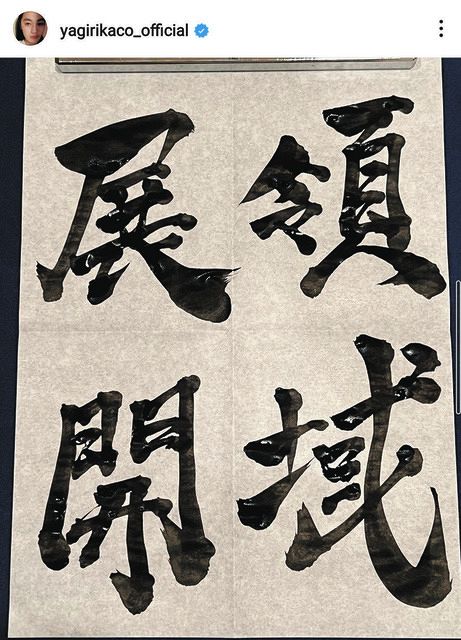 yagirikaco_official
領域
展開